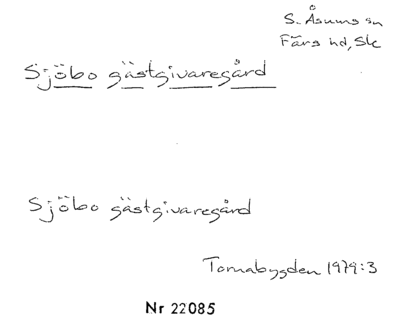 S. Åsums sn
Färs hd, Sk
Sjöbo gästgivaregård
Sjöbo gästgivaregård
Tornabygden 1979:3
Nr 22085